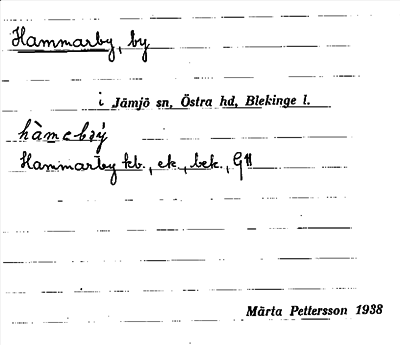 Hammarby, by
i Jämjö sn, Östra hd, Blekinge l.
Hammarby kb., ek., bek., GH
Märta Pettersson 1938